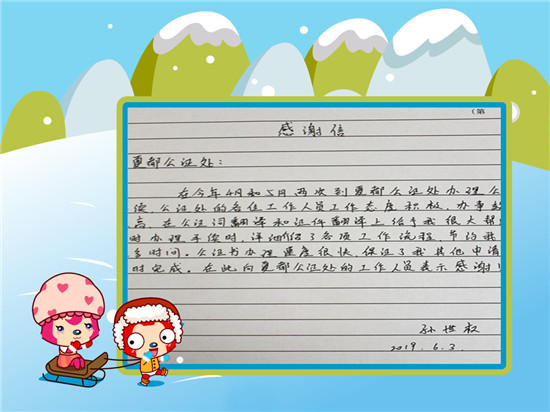 (第
感谢信
夏都公证处:
在今年4月和5月两次到夏都公证处办理公
续公证处的各位工作人员工作态度积极、办事
高,在公证词翻译和证件翻译上给予我很大帮
时办理手续时,详细介绍了各项工作流程,节约我
多时间。公证书办理速度很快,保证了我其他申请
时完成。在此向夏都公证处的工作人员表示感谢!
孙世权
2019.6.3.